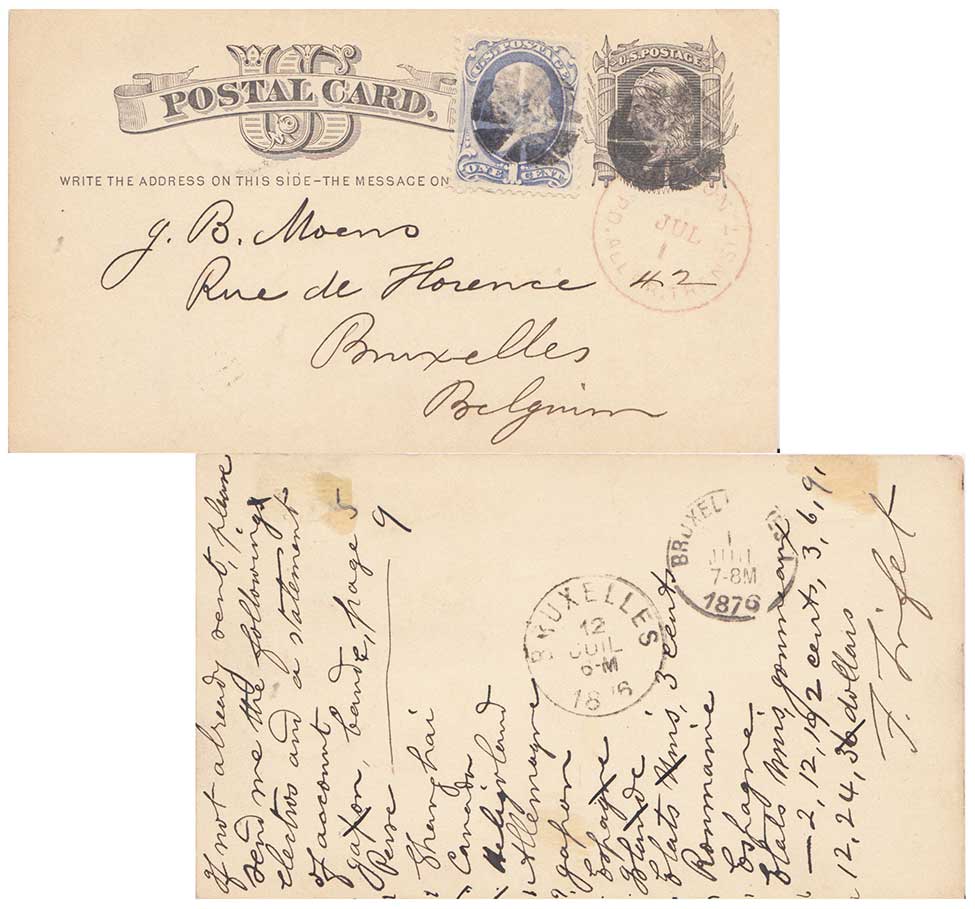 US
POSTAL CARD.
WRITE THE ADDRESS ON THIS SIDE-THE MESSAGE ON
U.S. POSTAGE
ONE CENT
1
U.S. POSTAGE
JUL
1
J. B. Moens
Rue de Florence 42
Bruxelles
Belgium
If not already sent, please
send me the following
electros and a statement
of account
bande, page 5
Perse 9
" Shanghai
" Canada
" Heligoland
" Allemagne
" Japon
" Espagne
" Islande
" Etats Unis, 3 cents
" Roumanie
" Espagne
" Etats Unis journaux
" — 2, 12, 1 1/2 cents, 3, 6, 9,
" 12, 24, 36 dollars
F. Trifet
BRUXELLES
12
JUIL
6-M
1876
BRUXEL
1
7-8M
1876